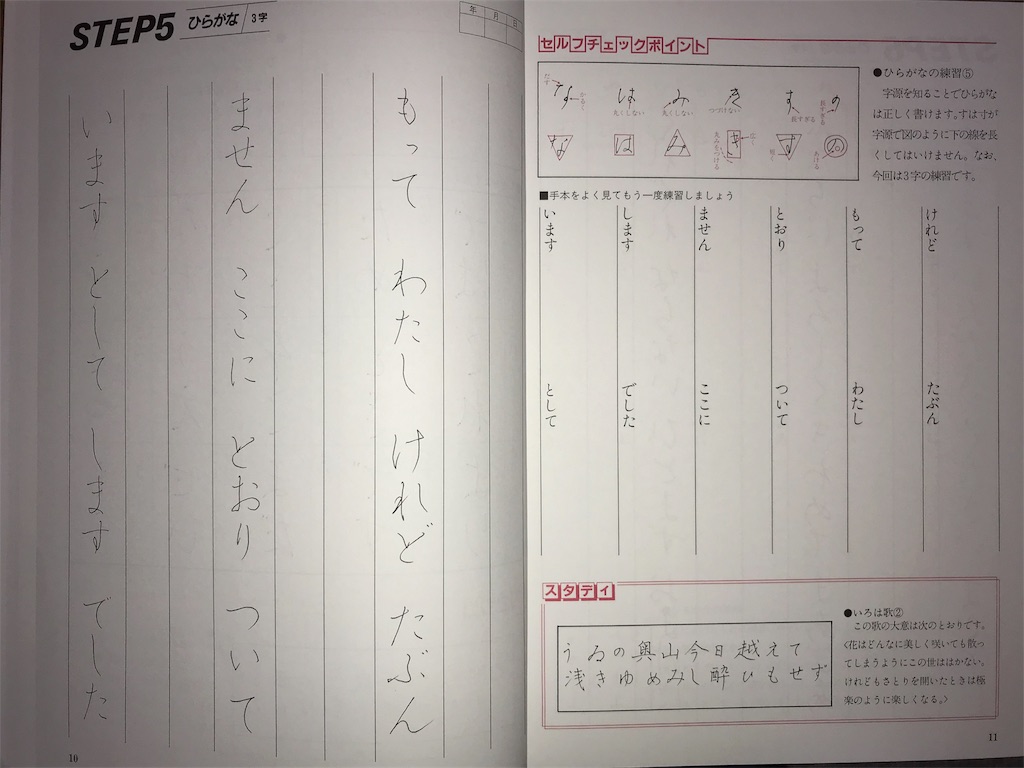 STEP5 ひらがな 3字
年 月 日
もって わたし けれど たぶん
ません ここに とおり ついて
います として します でした
10
セルフチェックポイント
な は み き す め
かるく
丸くしない
丸くしない
つづけない
長すぎる
長すぎる
な は み き す め
●ひらがなの練習⑤
字源を知ることでひらがな
は正しく書けます。すは寸が
字源で図のように下の線を長
くしてはいけません。なお、
今回は3字の練習です。
■手本をよく見てもう一度練習しましょう
けれど たぶん
もって わたし
とおり ついて
ません ここに
します でした
います として
スタディ
うゐの奥山今日越えて
浅きゆめみし酔ひもせず
●いろは歌②
この歌の大意は次のとおりです。
〈花はどんなに美しく咲いても散っ
てしまうようにこの世ははかない。
けれどもさとりを開いたときは極
楽のように楽しくなる。〉
11